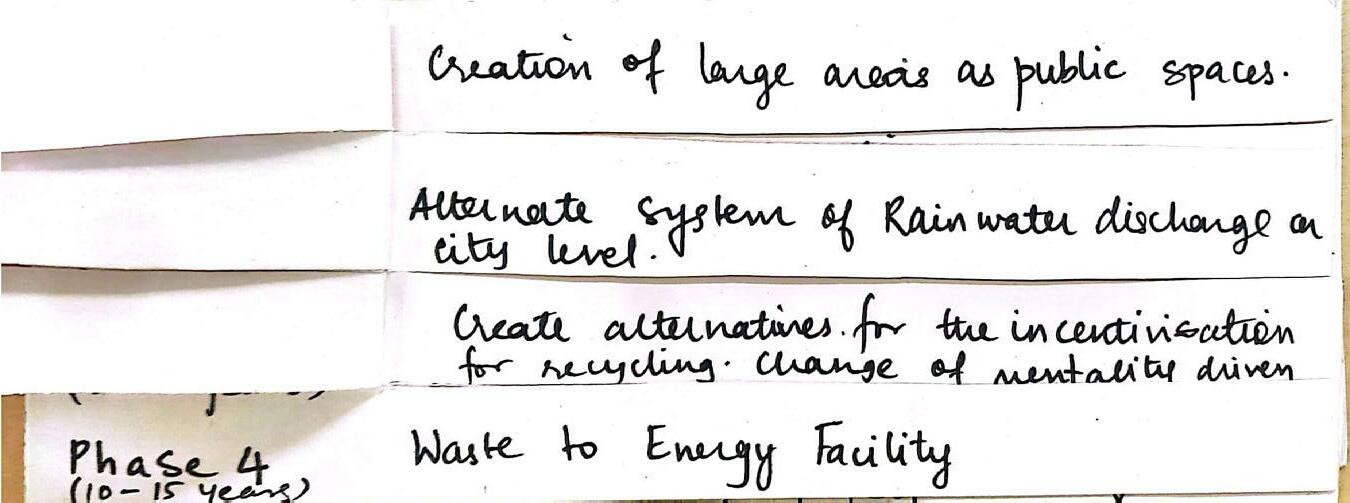 Creation of large areas as public spaces.
Alternate system of Rainwater discharge on
city level.
Create alternatives for the incentivisation
for recycling. Change of mentality driven
Phase 4
(10-15 years)
Waste to Energy Facility